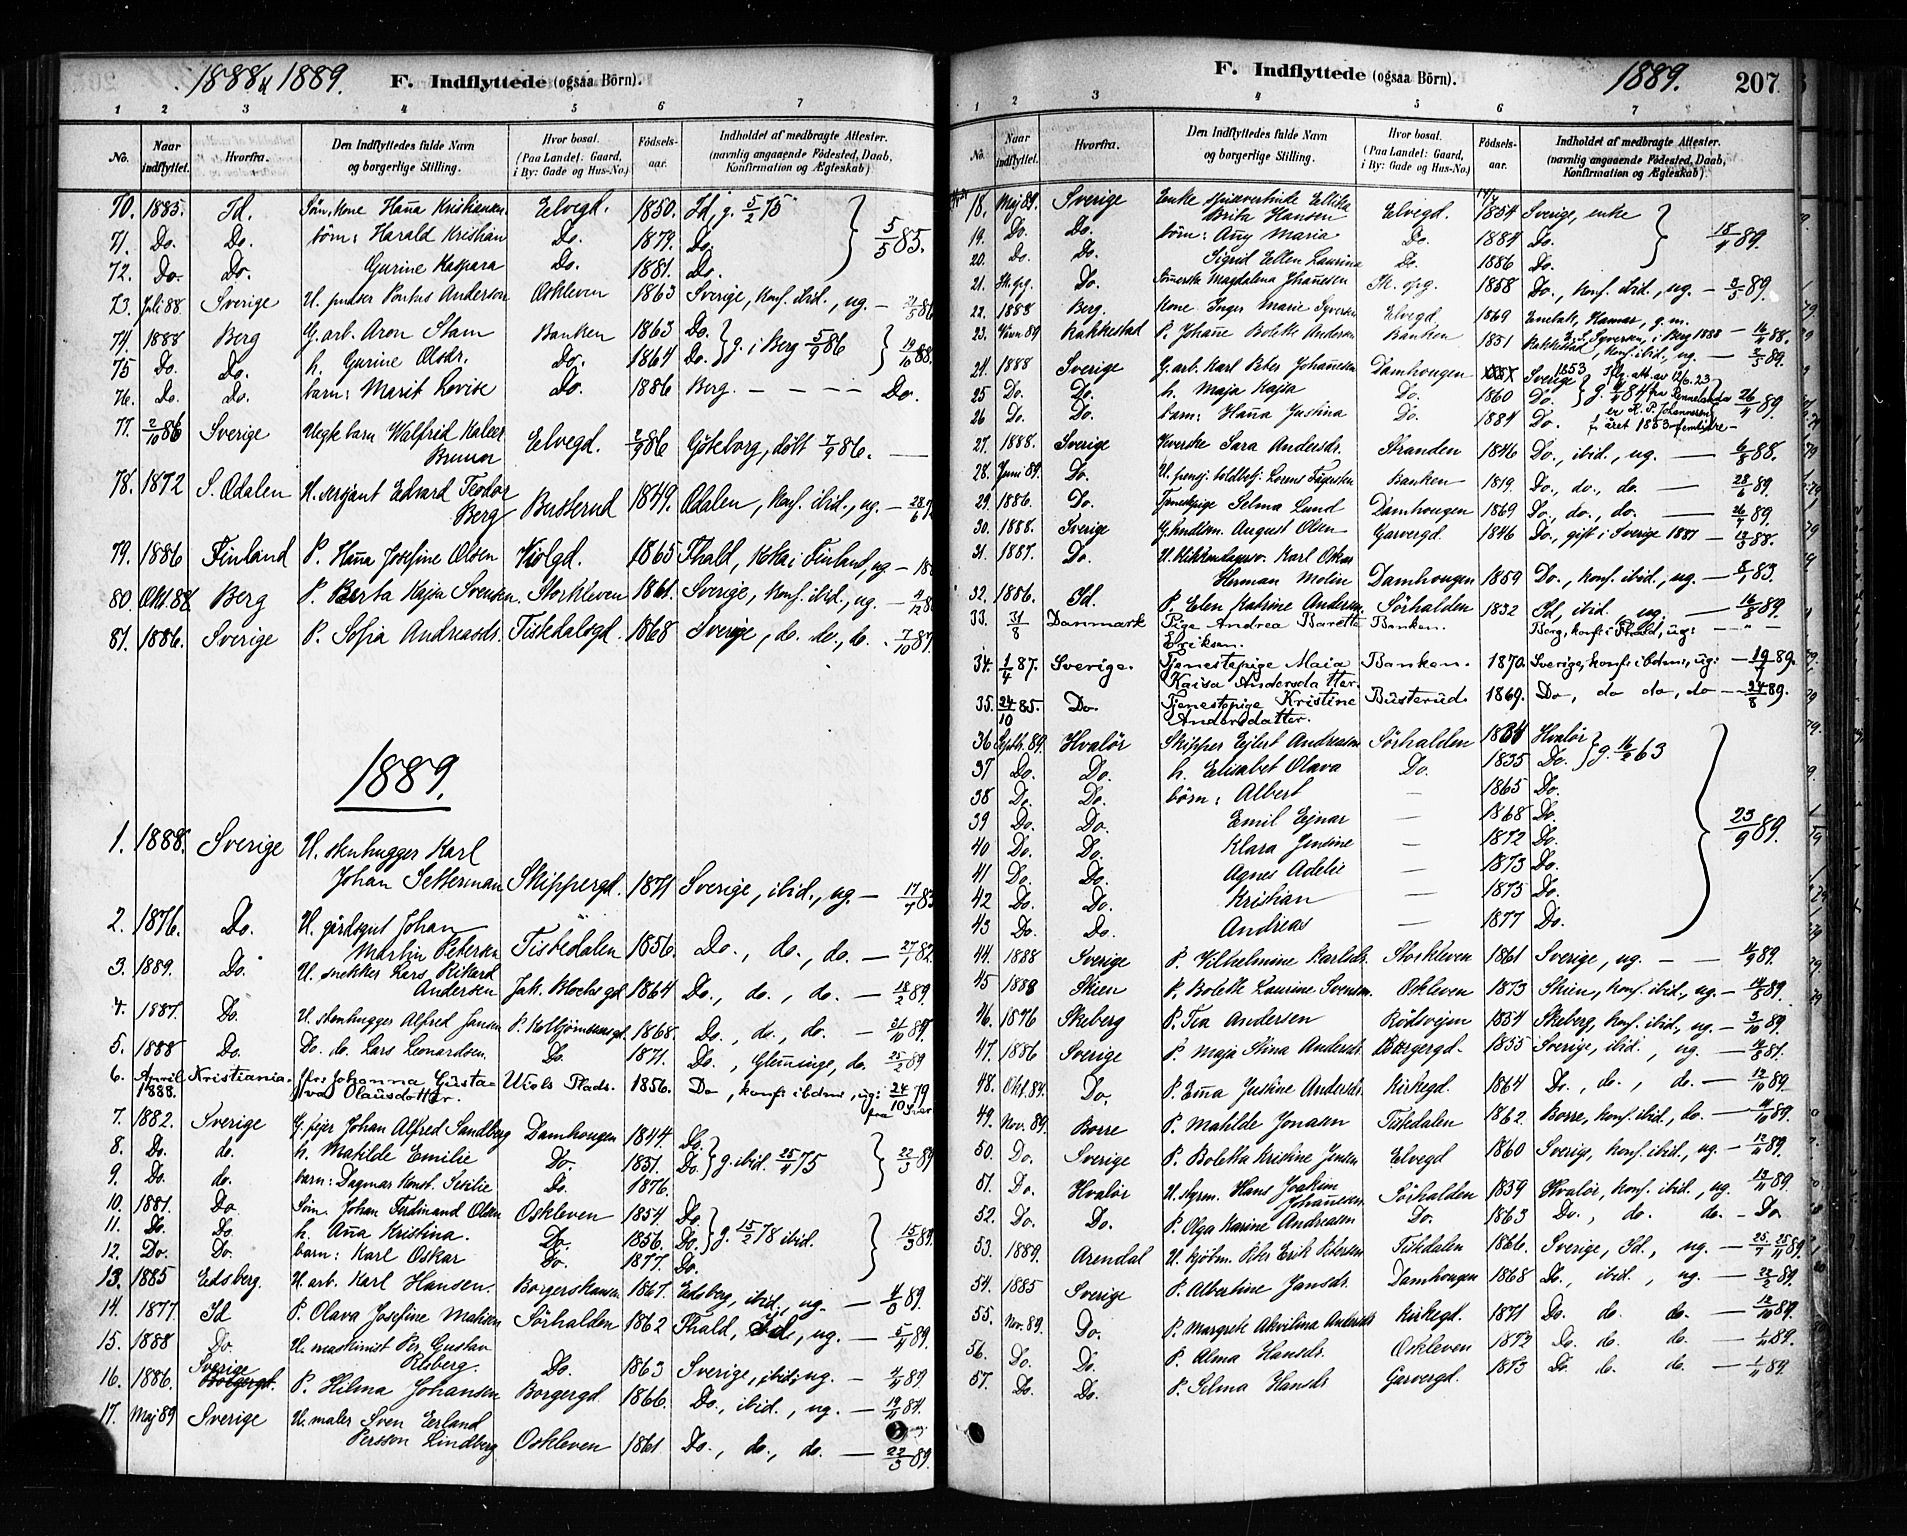 1888 & 1889. F. Indflyttede (ogsaa Börn).
1 2 3 4 5 6 7
No. Naar indflyttet. Hvorfra. Den Indflyttedes fulde Navn og borgerlige Stilling. Hvor bosat. (Paa Landet: Gaard, i By: Gade og Hus-No.) Födselsaar. Indholdet af medbragte Attester. (navnlig angaaende Födested, Daab, Konfirmation og Ægteskab)
70. 1885. Id. Kone Hanna Kristiansen Elvegd. 1850. Id, g. 5/2 75
71. Do. Do. börn: Harald Kristian Do. 1879. Do. 5/5 85.
72. Do. Do. Gurine Kaspara Do. 1881. Do.
73. Juli 88. Sverige U. Pontus Anderson Oskleven 1863 Sverige, konf. ibid., ug.
74. 1888 Berg G. arb. Aron Stam Banken 1863 Do. g. i Berg 5/9 86 19/10 88.
75 Do. Do. h. Gurine Olsdr. Do. 1864 Do.
76. Do. Do. barn: Marit Lovise Do. 1886 Berg — — — — Do.
77. 2/10 86 Sverige Uegte barn Walfrid Bruner Elvegd. 2/9 86 Göteborg, döbt 7/9 86. —
78. 1872 S. Odalen U. sersjant Edvard Teodor
Berg Busterud 1849. Odalen, konf. ibid., ug. —
79. 1886 Finland P. Hanna Josefine Olsen Violgd. 1865 Fhald, Finland, ug. —
80. Okt. 88 Berg P. Berta Kajsa Svensen Storkleven 1861. Sverige, konf. ibid., ug. —
81. 1886. Sverige P. Sofia Andreasds. Fiskedalsgd. 1868 Sverige, do. do., do. 7/10 87.
1889.
1. 1888. Sverige U. stenhugger Karl
Johan Setterman Skippergd. 1871 Sverige, ibid., ug. —
2. 1876. Do. U. gårdsgut Johan
Martin Petersen Fiskedalen 1856. Do., do., do. — 27/1 82.
3. 1889. Do. U. snekker Lars Rikard
Andersen Jak. Blochs gd 1864 Do., do., do. — 18/2 89
4. 1887. Do. U. stenhugger Alfred Jansen P. Kolbjörnsensgd. 1868. Do., do., do. —
5. 1888 Do. Do. do. Lars Leonardsen Do. 1871. Do., do. 25/2 89
6. April 1888. Kristiania. Johanna Gustava Olausdotter. Wiels Plads. 1856. Do, konf: ibdm:, ug: 24/10 79
7. 1882. Sverige G. fejer Johan Alfred Sandberg Damhougen 1844. Do. g. ibid. 25/4 75
8. Do. do. h. Matilde Emilie Do. 1851. Do.
9. Do. do. barn: Dagmar Konst. Sesilie Do. 1876.
10. 1881. Do. Söm. Johan Ferdinand Olsen Oskleven 1854. Do. g. 15/2 78 ibid.
11. Do. Do. h. Anna Kristina. Do. 1856. Do.
12. Do. Do. barn: Karl Oskar Do. 1877. Do.
13. 1885 Edsberg. U. arb. Karl Hansen. Borgerskansen 1867. Edsberg, ibid., ug. —
14. 1877. Id P. Olava Josefine Madsen Sörhalden 1862 Fhald, Id, ug. —
15. 1888 Do. U. maskinist Per Gustav
Risberg. Do. 1863 Sverige, ibid., ug. —
16. 1886. Sverige P. Hilma Johansen Borgergd. 1866. Do., ibid., ug. —
17. Maj 89 Sverige U. maler Sven Erland
Persson Lindberg Oskleven 1861. Do., do., do. — 22/5 89.
F. Indflyttede (ogsaa Börn). 1889. 207.
1 2 3 4 5 6 7
No. Naar indflyttet. Hvorfra. Den Indflyttedes fulde Navn og borgerlige Stilling. Hvor bosat. (Paa Landet: Gaard, i By: Gade og Hus-No.) Födselsaar. Indholdet af medbragte Attester. (navnlig angaaende Födested, Daab, Konfirmation og Ægteskab)
18. Maj 89. Sverige Enke
Brita Hansen Elvegd. 1854 Sverige, enke
19. Do. Do. börn: Anny Maria Do. 1884 Do. 18/4 89.
20. Do. Do. Sigrid Ellen Laurina Do. 1886 Do.
21. Do. Magdalena Johannesen 1858 Do., konf. ibid., ug. —
22. 1888 Berg. Kone Inger Marie Syversen Elvegd. 1869 Enebak, Hamar, g. m.
Syversen, i Berg 1888 —
23. Rakkestad P. Johanne Bolette Andersen Banken 1851 Rakkestad, konf. ibid., ug. —
24. 1888 Sverige G. arb. Karl Peter Johannesen Damhougen 1853 Sverige
25 Do. Do. h. Maja Kajsa Do. 1860 Do. 26/4 89.
26 Do. Do. barn: Hanna Justina Do. 1884 Do.
27. 1888. Sverige Sara Andersds. Stranden 1846 Do., ibid., ug. —
28. Juni 89. Do. Banken 1819. Do., do., do. — 28/6 89.
29. 1886. Do. Tjenestepige Selma Lund Damhougen 1869 Do., do., do. —
30. 1888. Sverige August Olsen Garvergd. 1846 Do., gift i Sverige 1887 —
31. 1887. Do. U. Karl Oskar
Herman Molin Damhougen 1859 Do., konf. ibid., ug. —
32. 1886. Id. P. Elen Katrine Andersen Sörhalden 1832 Id, ibid., ug. —
33. 31/8 Danmark Pige Andrea Barette Banken. Berg, konf: i Fhald, ug: — " —
Eriksen.
34. 1/4 87. Sverige. Tjenestepige Maia Banken. 1870. Sverige, konf: ibdm:, ug: — 19/7 89.
Kaisa Andersdatter.
35. 24/10 85. Do. Tjenestepige Kristine Busterud. 1869. Do, do do, do — 24/8 89.
Andersdatter.
36 Septbr. 89. Hvalör Skipper Ejlert Andreasen Sörhalden 1834 Hvalör g. 16/2 63
37 Do. Do. h. Elisabet Olava Do. 1835 Do.
38 Do. Do. börn: Albert — 1865 Do.
39 Do. Do. Emil Ejnar — 1868 Do. 23/9 89.
40 Do. Do. Klara Jensine — 1872 Do.
41 Do. Do. Agnes Adelie — 1873 Do.
42 Do. Do. Kristian — 1875 Do.
43 Do. Do. Andreas — 1877 Do.
44. 1888 Sverige P. Vilhelmine Karlsds. Storkleven 1861 Sverige, ug. — —
45 1888 Skien P. Bolette Laurine Svensen. Oskleven 1873 Skien, konf. ibid., ug. —
46. 1876 Skeberg P. Tea Andersen Rödsvejen 1854 Skeberg, konf. ibid., ug. —
47. 1886 Sverige P. Maja Stina Andersds. Borgergd. 1855 Sverige, ibid., ug. —
48. Okt. 89. Do. P. Emma Justine Andersds. Kirkegd. 1864 Do., do., do. — 12/10 89.
49. Nov. 89. Borre P. Matilde Jonasen Fiskedalen 1862. Borre, konf. ibid., do. —
50. Do. Sverige P. Boletta Kristine Jensen Elvegd 1860 Sverig, konf. ibid., ug. —
51. Do. Hvalör U. styrm. Hans Joakim
Johannesen Sörhalden 1859 Hvalör, konf. ibid., ug.
52. Do. Do. P. Olga Karine Andreasen Do. 1863 Do., do. do. - Do.
53. 1889. Arendal U. kjöbm. Erik Petersen Fiskdalen 1866. Sverige, Id., ug. —
54. 1885 Sverige P. Albertine Jansds. Damhougen 1868 Do., ibid., ug. —
55. Nov. 89. Do. P. Margrete Akvilina Andersds. Kirkegd. 1871 Do. do. do. —
56. Do. Do. P. Alma Hansds. Oskleven 1872 Do. do. do. —
57. Do. Do. P. Selma Hansds Garvergd. 1873 Do. do. do. —